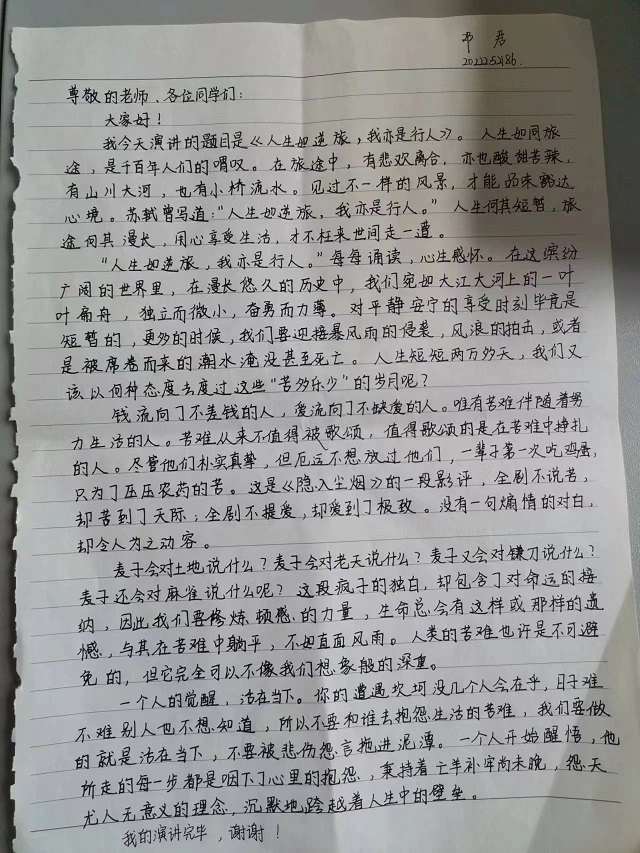 邓君
2022252186.
尊敬的老师、各位同学们：
大家好！
我今天演讲的题目是《人生如逆旅，我亦是行人》。人生如同旅
途，是千百年人们的喟叹。在旅途中，有悲欢离合，亦也酸甜苦辣，
有山川大河，也有小桥流水。见过不一样的风景，才能品味豁达
心境。苏轼曾写道：“人生如逆旅，我亦是行人。”人生何其短暂，旅
途何其漫长，用心享受生活，才不枉来世间走一遭。
“人生如逆旅，我亦是行人。”每每诵读，心生感怀。在这缤纷
广阔的世界里，在漫长悠久的历史中，我们宛如大江大河上的一叶
叶扁舟，独立而微小，奋勇而力薄。对平静安宁的享受时刻毕竟是
短暂的，更多的时候，我们要迎接暴风雨的侵袭，风浪的拍击，或者
是被席卷而来的潮水淹没甚至死亡。人生短短两万多天，我们又
该以何种态度去度过这些“苦多乐少”的岁月呢？
钱流向了不差钱的人，爱流向了不缺爱的人。唯有苦难伴随着努
力生活的人。苦难从来不值得被歌颂，值得歌颂的是在苦难中挣扎
的人。尽管他们朴实真挚，但厄运不想放过他们，一辈子第一次吃鸡蛋，
只为了压压农药的苦。这是《隐入尘烟》的一段影评，全剧不说苦，
却苦到了天际；全剧不提爱，却爱到了极致。没有一句煽情的对白，
却令人为之动容。
麦子会对土地说什么？麦子会对老天说什么？麦子又会对镰刀说什么？
麦子还会对麻雀说什么呢？这段疯子的独白，却包含了对命运的接
纳，因此我们要修炼顿感的力量，生命总会有这样或那样的遗
憾，与其在苦难中躺平，不如直面风雨。人类的苦难也许是不可避
免的，但它完全可以不像我们想象般的深重。
一个人的觉醒，活在当下。你的遭遇坎坷没几个人会在乎，日子难
不难别人也不想知道，所以不要和谁去抱怨生活的苦难，我们要做
的就是活在当下，不要被悲伤怨言拖进泥潭。一个人开始醒悟，他
所走的每一步都是咽下了心里的抱怨，秉持着亡羊补牢尚未晚，怨天
尤人无意义的理念，沉默地跨越着人生中的壁垒。
我的演讲完毕，谢谢！